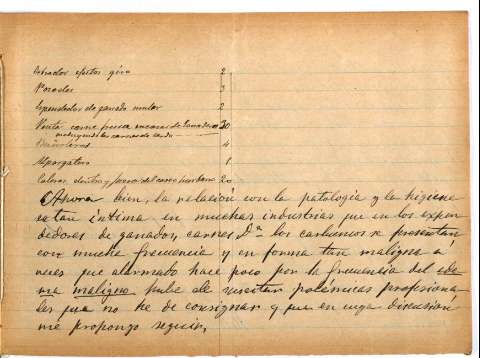 Cobrador efectos giro 2
Posadas 3
Expendedor de ganado menor 2
Venta carne fresca en casas de Ganaderos 30
incluyendo las carnes de cerdo
Buñoleros 4
Alpargatero 1
dentro y fuera del casco urbano 20
Ahora bien, la relación con la patología y la higiene
es tan íntima en muchas industrias que en los expen
dedores de ganados, carnes, los carbuncos se presentan
con mucha frecuencia y en forma tan maligna á
veces que alarmado hace poco por la frecuencia del ede
ma maligno hube de suscitar polémicas profesiona
les que no he de consignar y que en cuya discusión
me propongo seguir.